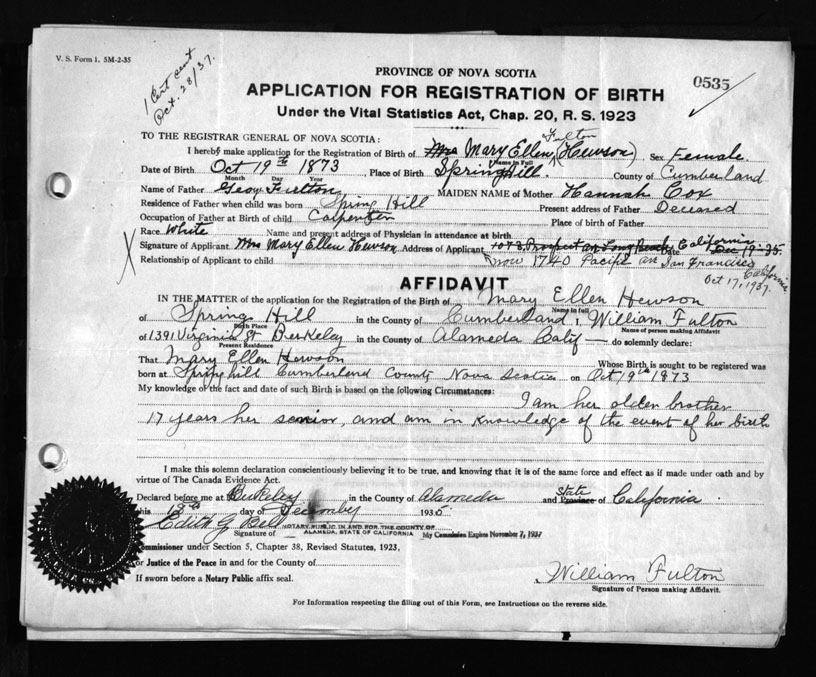 V. S. Form 1. 5M-2-35
1 Cert sent
Oct. 28/37.
0535
PROVINCE OF NOVA SCOTIA
APPLICATION FOR REGISTRATION OF BIRTH
Under the Vital Statistics Act, Chap. 20, R. S. 1923
TO THE REGISTRAR GENERAL OF NOVA SCOTIA:
Fulton
I hereby make application for the Registration of Birth of Mrs Mary Ellen (Hewson) Sex Female.
Name in Full
Date of Birth Oct 19th 1873, Place of Birth Spring Hill. County of Cumberland
Month Day Year
Name of Father Geo Fulton MAIDEN NAME of Mother Hannah Cox
Residence of Father when child was born Spring Hill Present address of Father Deceased
Occupation of Father at Birth of child Carpenter Place of birth of Father
Race White Name and present address of Physician in attendance at birth
Signature of Applicant Mrs Mary Ellen Hewson Address of Applicant 1078 Prospect av Long Beach, California Date Dec 19-35.
Relationship of Applicant to child now 1740 Pacific av San Francisco California
Oct 17, 1937.
AFFIDAVIT
IN THE MATTER of the application for the Registration of the Birth of Mary Ellen Hewson
Name in full
of Spring Hill in the County of Cumberland, I, William Fulton
Birth Place Name of person making Affidavit
of 1391 Virginia St Berkeley in the County of Alameda Calif — do solemnly declare:
Present Residence
That Mary Ellen Hewson Whose Birth is sought to be registered was
born at Springhill Cumberland County Nova Scotia on Oct 19th 1873
My knowledge of the fact and date of such Birth is based on the following Circumstances:
I am her older brother
17 years her senior, and am in knowledge of the event of her birth
I make this solemn declaration conscientiously believing it to be true, and knowing that it is of the same force and effect as if made under oath and by
virtue of The Canada Evidence Act.
Declared before me at Berkeley in the County of Alameda and State Province of California.
this 13th day of December 1935.
Edith G Bell NOTARY PUBLIC IN AND FOR THE COUNTY OF
Signature of ALAMEDA, STATE OF CALIFORNIA My Commission Expires November 7, 1937
Commissioner under Section 5, Chapter 38, Revised Statutes, 1923,
or Justice of the Peace in and for County of
If sworn before a Notary Public affix seal.
William Fulton
Signature of Person making Affidavit.
For Information respecting the filling out of this Form, see Instructions on the reverse side.